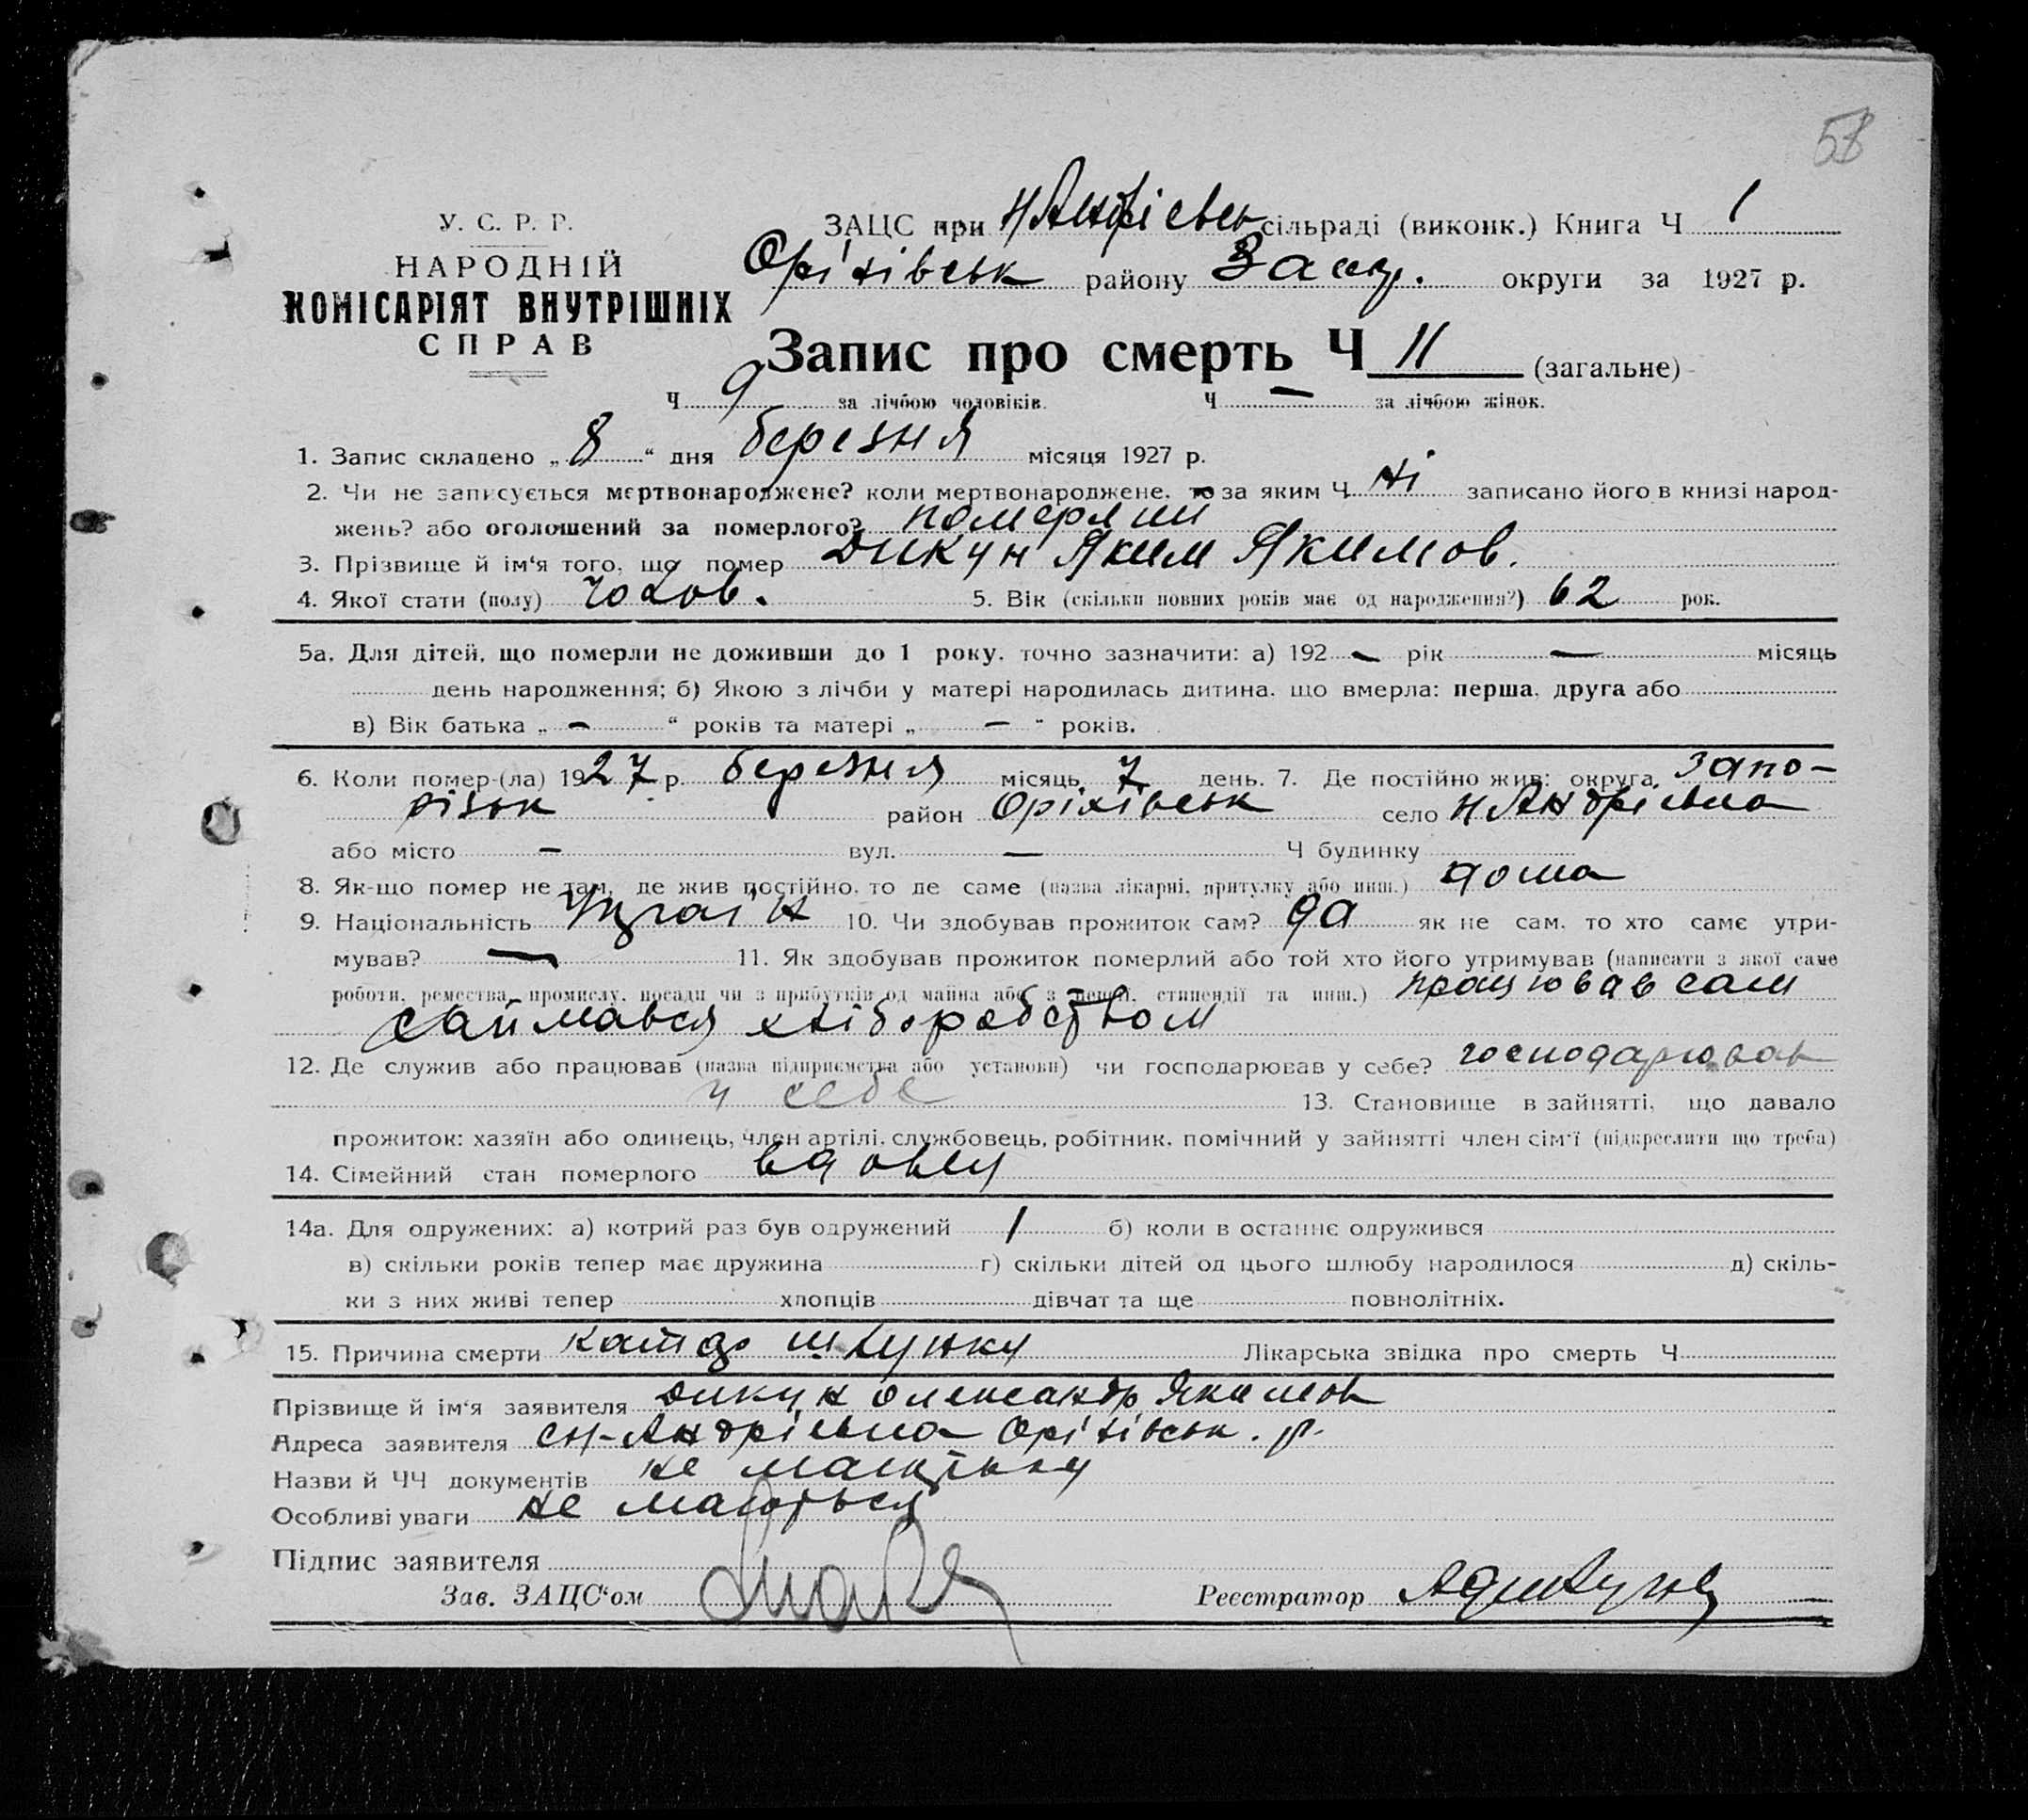 58
У. С. Р. Р.
НАРОДНІЙ
КОМІСАРІЯТ ВНУТРІШНІХ
СПРАВ
ЗАЦС при Н Андрієвск сільраді (виконк.) Книга Ч 1
Оріхівськ району Запор. округи за 1927 р.
Запис про смерть Ч 11 (загальне)
Ч 9 за лічбою чоловіків. Ч — за лічбою жінок.
1. Запис складено „ 8 “ дня березня місяця 1927 р.
2. Чи не записується мертвонароджене? коли мертвонароджене, то за яким Ч Ні записано його в книзі народ-
жень? або оголошений за померлого? померлий
3. Прізвище й ім‘я того, що помер Дикун Яким Якимов.
4. Якої стати (полу) чолов. 5. Вік (скільки повних років має од народження?) 62 рок.
5а. Для дітей, що померли не доживши до 1 року, точно зазначити: а) 192 - рік — місяць
день народження; б) Якою з лічби у матері народилась дитина, що вмерла: перша, друга або
в) Вік батька „ - “ років та матері „ - “ років.
6. Коли помер-(ла) 1927 р. березня місяць 7 день. 7. Де постійно жив: округа Запо-
різьк район Оріхівськ село Н Андрієвка
або місто - вул. — Ч будинку
8. Як-що помер не там, де жив постійно, то де саме (назва лікарні, притулку або инш.) дома
9. Національність Україн 10. Чи здобував прожиток сам? да як не сам, то хто саме утри-
мував? — 11. Як здобував прожиток померлий або той хто його утримував (написати з якої саме
роботи, ремества, промислу, посади чи з прибутків од майна або з пенсії, стипендії та инш.) працював сам
займався хліборобством
12. Де служив або працював (назва підприємства або установи) чи господарював у себе? господарював
у себе 13. Становище в зайнятті, що давало
прожиток: хазяїн або одинець, член артілі, службовець, робітник, помічний у зайнятті член сім‘ї (підкреслити що треба)
14. Сімейний стан померлого вдовец
14а. Для одружених: а) котрий раз був одружений 1 б) коли в останнє одружився
в) скільки років тепер має дружина г) скільки дітей од цього шлюбу народилося д) скіль-
ки з них живі тепер хлопців дівчат та ще повнолітніх.
15. Причина смерти шлунку Лікарська звідка про смерть Ч
Прізвище й ім‘я заявителя Дикун Олександр Якимов
Адреса заявителя с Н-Андрієвка Оріхівськ. р.
Назви й ЧЧ документів не
Особливі уваги не маються
Підпис заявителя
Зав. ЗАЦС‘ом Реєстратор